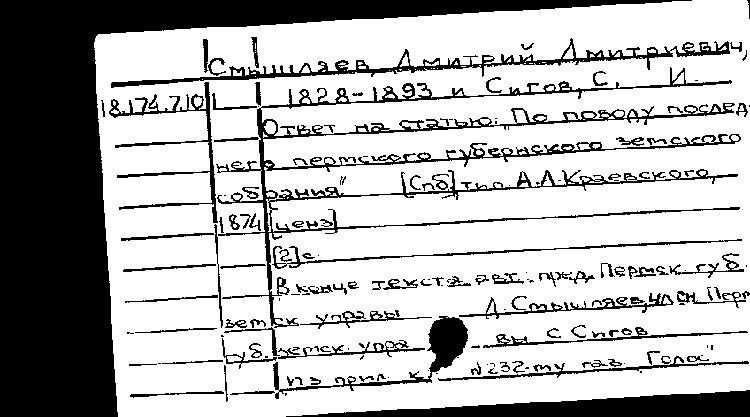 Смышляев, Дмитрий Дмитриевич,
18.174.7.10 1828-1893 и Сигов, С. И.
Ответ на статью: "По поводу послед-
него пермского губернского земского
собрания." [Спб] тип. А.А.Краевского,
1874 [ценз]
[2] с.
В конце текста авт.: пред. Пермск. губ.
земск управы Д. Смышляев, член Перм
губ. земск. упра вы С Сигов
Из прил. к №232-му газ "Голос"